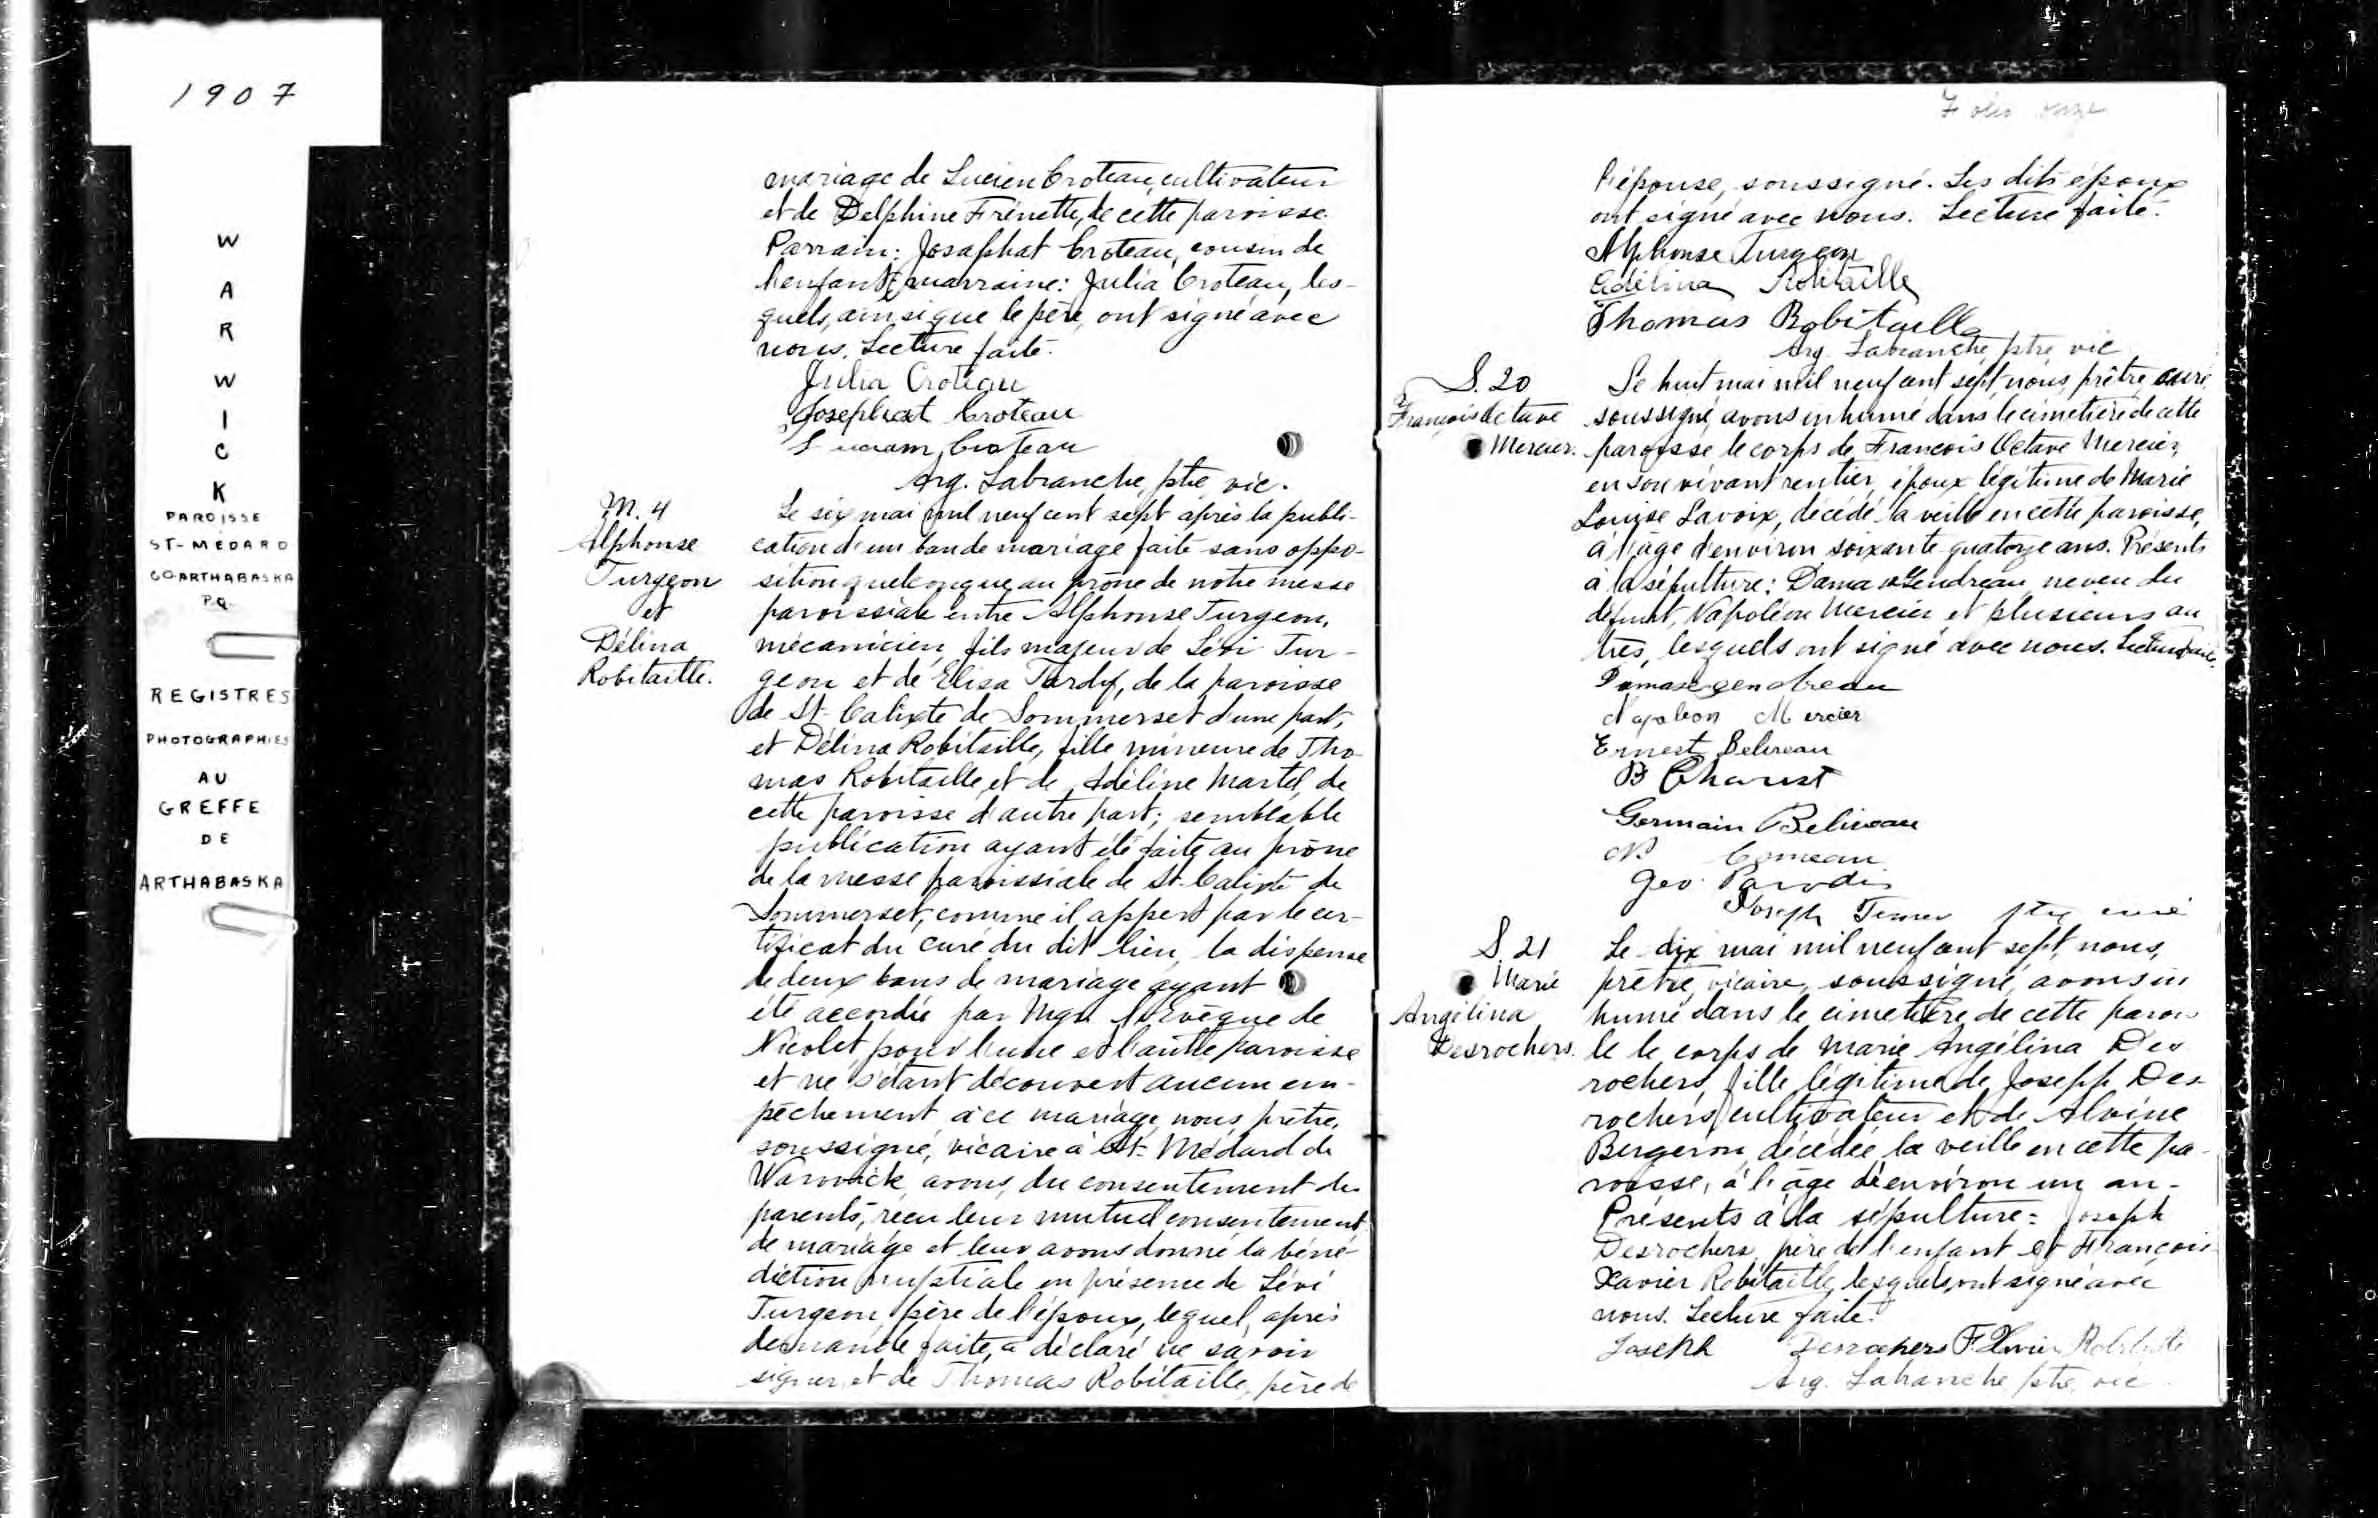 1907
W
A
R
W
I
C
K
PAROISSE
ST-MÉDARD
CO ARTHABASKA
P.Q.
REGISTRES
PHOTOGRAPHIES
AU
GREFFE
DE
ARTHABASKA
mariage de Lucien Croteau, cultivateur
et de Delphine Frénette, de cette paroisse.
Parrain: Josaphat Croteau, cousin de
l'enfant; marraine: Julia Croteau, les-
quels, ainsi que le père, ont signé avec
nous. Lecture faite.
Julia Croteau
Josephat Croteau
Croteau
Arg. Labranche, ptre, vic.
M. 4
Alphonse
Turgeon
et
Délina
Robitaille.
Le six mai mil neuf cent sept après la publi-
cation d'un ban de mariage faite sans oppo-
sition quelconque au prône de notre messe
paroissiale entre Alphonse Turgeon,
mécanicien, fils majeur de Lévi Tur-
geon et de Elisa Tardif, de la paroisse
de St-Calixte de Sommerset d'une part,
et Délina Robitaille, fille mineure de Tho-
mas Robitaille et de Adéline Martel, de
cette paroisse d'autre part; semblable
publication ayant été faite au prône
de la messe paroissiale de St-Calixte de
Sommerset, comme il appert par le cer-
tificat du curé du dit lieu, la dispense
de deux bans de mariage ayant
été accordée par Mgr l'Evêque de
Nicolet pour l'une et l'autre paroisse
et ne s'étant découvert aucun em-
pêchement à ce mariage, nous prêtre,
soussigné, vicaire à St-Médard de
Warwick, avons, du consentement des
parents, reçu leur mutuel consentement
de mariage et leur avons donné la béné-
diction nuptiale en présence de Lévi
Turgeon, père de l'époux, lequel, après
demande faite, a déclaré ne savoir
signer, et de Thomas Robitaille, père de
Folio onze
l'épouse, soussigné. Les dits époux
ont signé avec nous. Lecture faite.
Alphonse Turgeon
Adélina Robitaille
Thomas Robitaille
Arg. Labranche, ptre, vic
S. 20
François Octave
Mercier.
Le huit mai mil neuf cent sept, nous, prêtre, curé
soussigné, avons inhumé dans le cimetière de cette
paroisse le corps de François Octave Mercier,
en son vivant rentier, époux légitime de Marie
Louise Lavoix, décédé la veille en cette paroisse,
à l'âge d'environ soixante-quatorze ans. Présents
à la sépulture: Damase Gendreau, neveu du
défunt, Napoléon Mercier et plusieurs au
tres, lesquels ont signé avec nous. Lecture faite.
Damase gendreau
Napoleon Mercier
Ernest Beliveau
B Charest
Germain Beliveau
N Comeau
Geo. Parodis
Joseph ptre curé
S. 21
Marie
Angélina
Desrochers.
Le dix mai mil neuf cent sept, nous,
prêtre, vicaire, soussigné, avons in
humé dans le cimetière de cette parois
le le corps de Marie Angélina Des
rochers, fille légitime de Joseph Des-
rochers cultivateur et de Alvine
Bergeron, décédée la veille en cette pa-
roisse, à l'âge d'environ un an.
Présents à la sépulture: Joseph
Desrochers, père de l'enfant et François
Xavier Robitaille, lesquels ont signé avec
nous. Lecture faite.
Joseph Desrochers F. Xavier Robitaille
Arg. Labranche ptre, vic